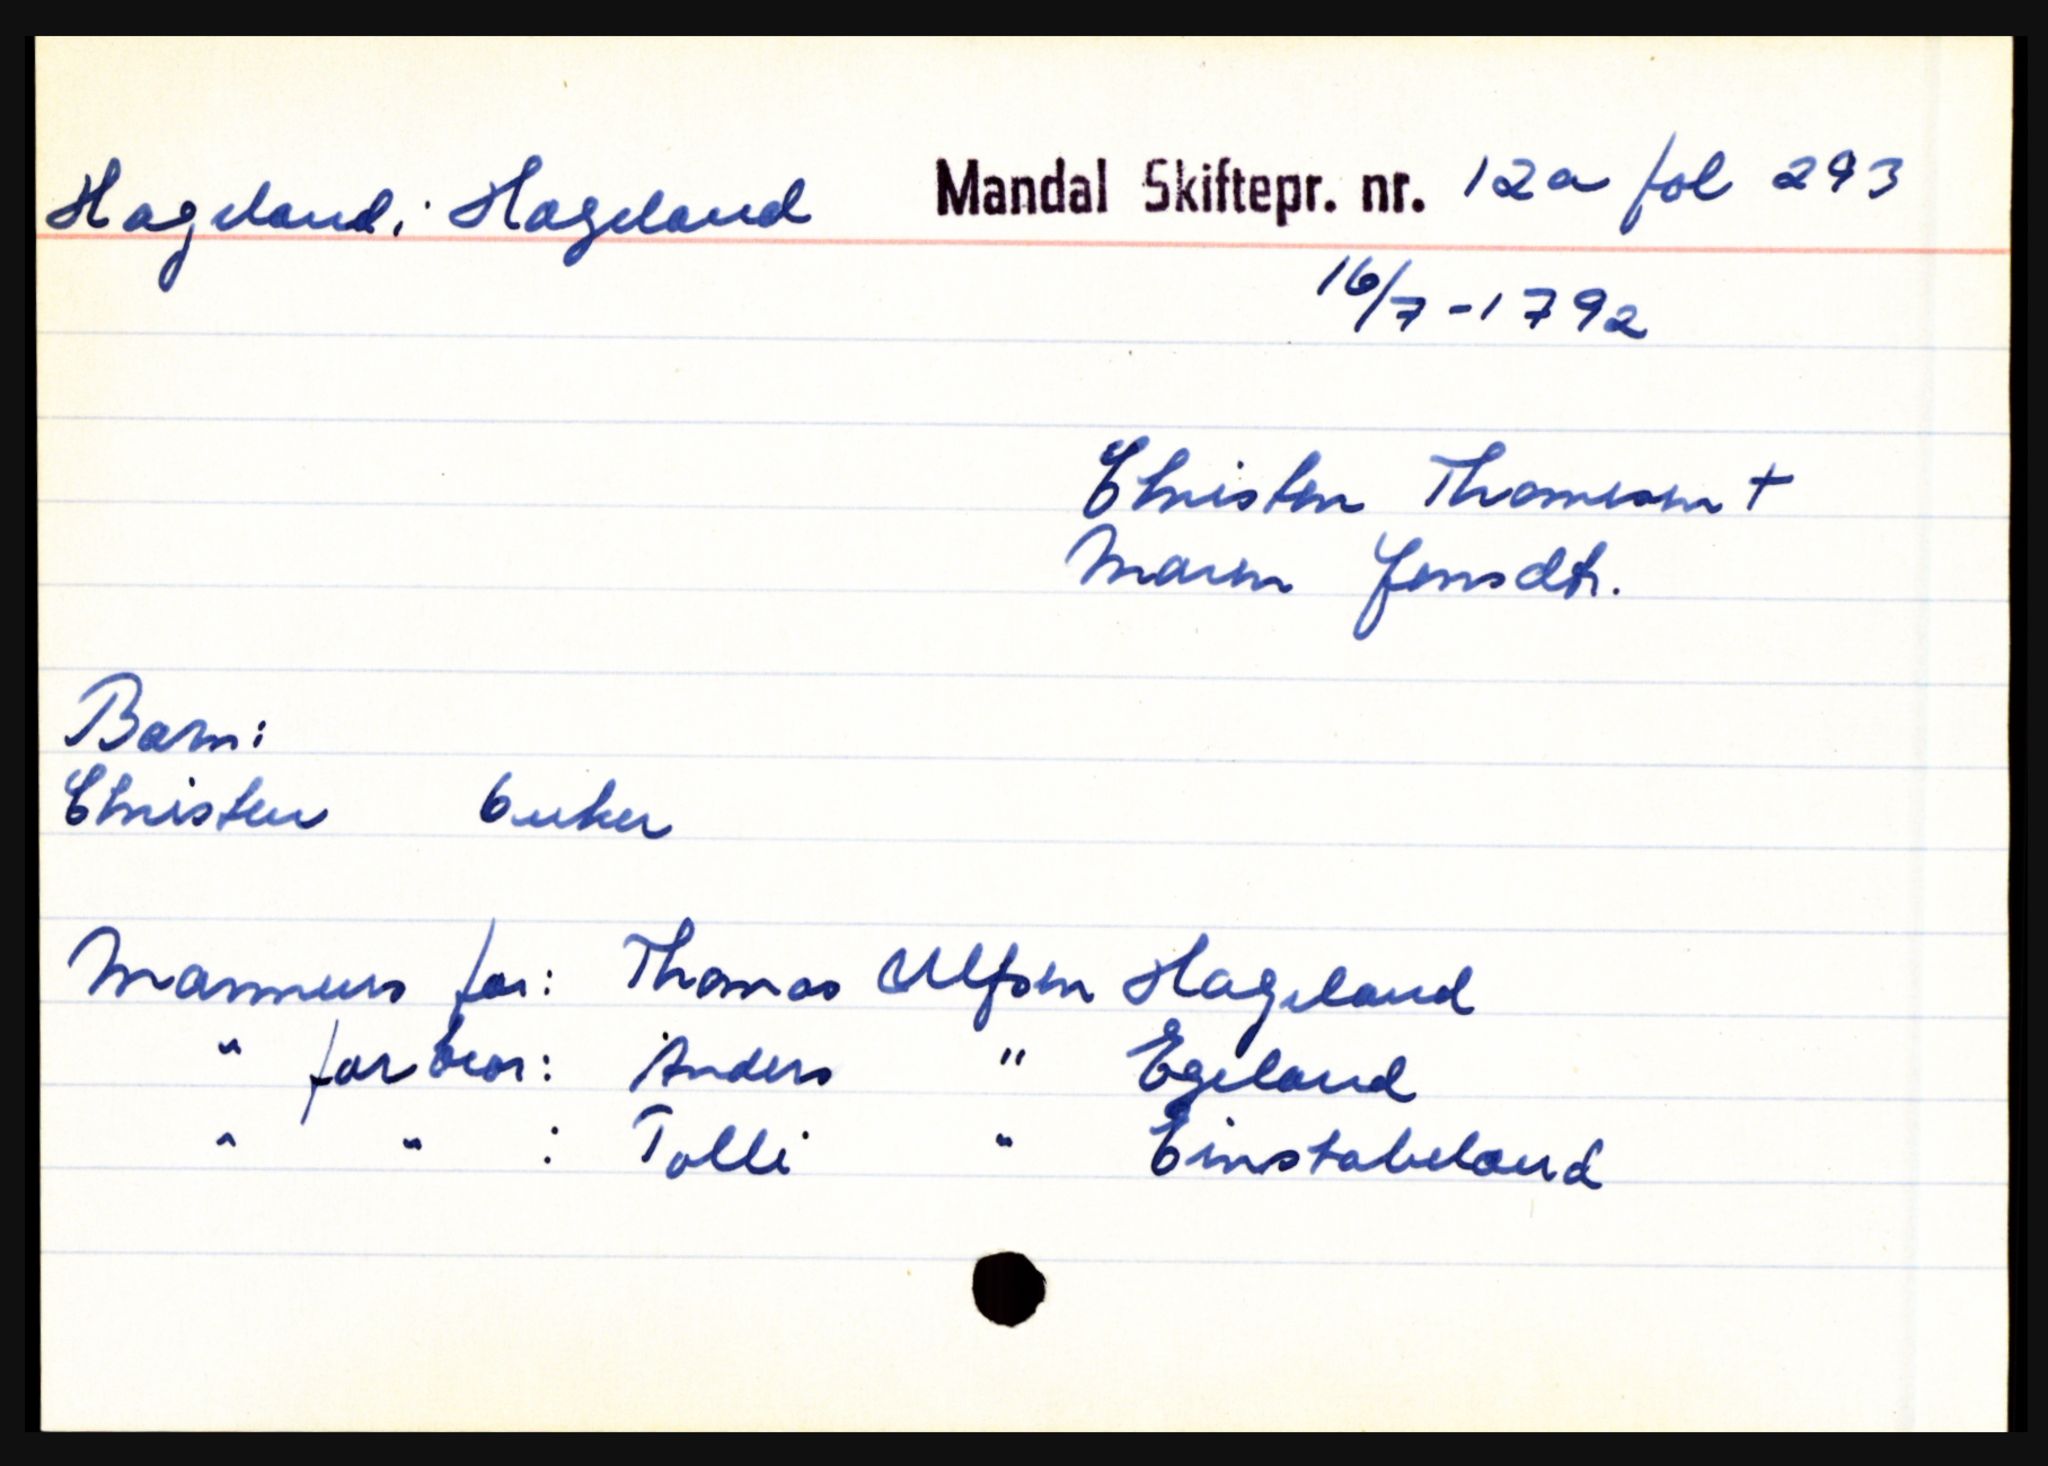 Hageland, Hageland Mandal Skiftepr. nr. 12a fol 293
16/7-1792
Christen Thomesen +
Maren Jensdtr.
Barn:
Christen 6 uker
Mannens far: Thomas Ulfsen Hageland
" farbror: Anders " Egeland
" " : Tolli " Einstabeland